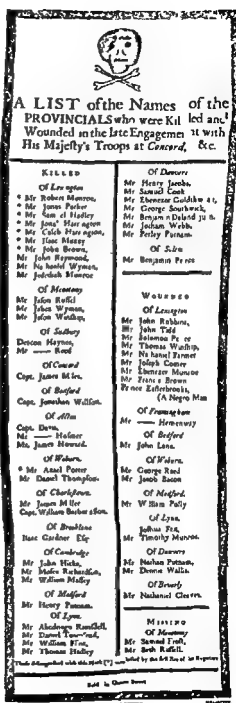 A LIST of the Names of the
PROVINCIALS who were Killed and
Wounded in the late Engagement with
His Majesty's Troops at Concord, &c.
KILLED
Of Lexington
* Mr Robert Monroe,
* Mr Jonas Parker
* Mr Sam el Hadley
* Mr Jona' Harrington
* Mr Caleb Harrington,
* Mr Isaac Muzzy
* Mr John Brown,
Mr John Raymond,
Mr Na haniel Wyman,
Mr Jedediah Monroe
Of Menotomy
Mr Jason Russel
Mr Jabez Wyman,
Mr Jason Winship,
Of Sudbury
Deacon Haynes,
Mr —— Reed
Of Concord
Capt. James Miles.
Of Bedford
Capt. Jonathan Willson.
Of Acton
Capt. Davis,
Mr —— Hosmer
Mr. James Howard.
Of Woburn.
* Mr Azael Porter
Mr Daniel Thompson.
Of Charlestown.
Mr James Miller
Capt. William Barber's Son.
Of Brookline
Isaac Gardner Esq
Of Cambridge
Mr John Hicks,
Mr Moses Richardson,
Mr William Massey
Of Medford
Mr Henry Putnam.
Of Lynn.
Mr Abednego Ramsdell,
Mr Daniel Townsend,
Mr William Flint,
Mr Thomas Hadley
Of Danvers
Mr Henry Jacobs,
Mr Samuel Cook
Mr Ebenezer Goldthwait,
Mr George Southwick,
Mr Benjamin Daland jun.
Mr Jotham Webb,
Mr Perley Putnam.
Of Salem
Mr Benjamin Peirce
WOUNDED
Of Lexington
Mr John Robbins,
Mr John Tidd
Mr Solomon Peirce
Mr Thomas Winship,
Mr Nathaniel Farmer
Mr Joseph Comee
Mr Ebenezer Munroe
Mr Francis Brown
Prince Easterbrooks,
(A Negro Man
Of Framingham
Mr —— Hemenway
Of Bedford
Mr John Lane.
Of Woburn.
Mr George Reed
Mr Jacob Bacon
Of Medford.
Mr William Polly
Of Lynn.
Joshua Felt,
Mr Timothy Munroe.
Of Danvers
Mr Nathan Putnam,
Mr Dennis Wallis.
Of Beverly
Mr Nathaniel Cleaves.
MISSING
Of Menotomy
Mr Samuel Frost,
Mr Seth Russell.
Those distinguished with this Mark [*] were killed by the first Fire of the Regulars
Sold in Queen Street